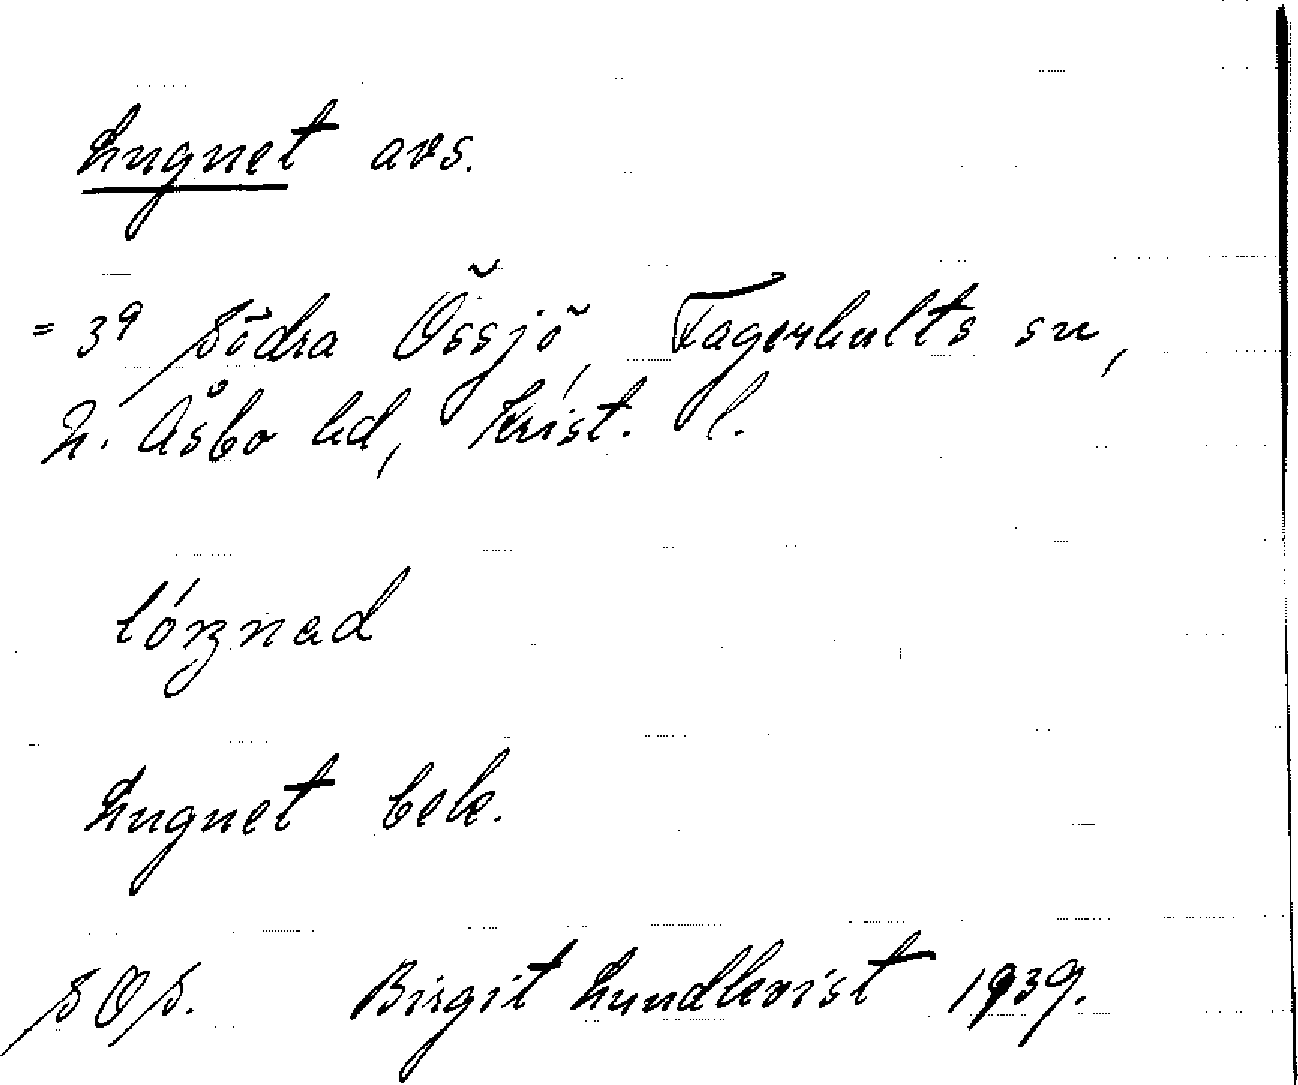 Lugnet avs.
= 3⁹ Södra Össjö, Fagerhults sn,
N. Åsbo hd, Krist. l.
Lugnet bek.
SOS. Birgit Lundkvist 1939.